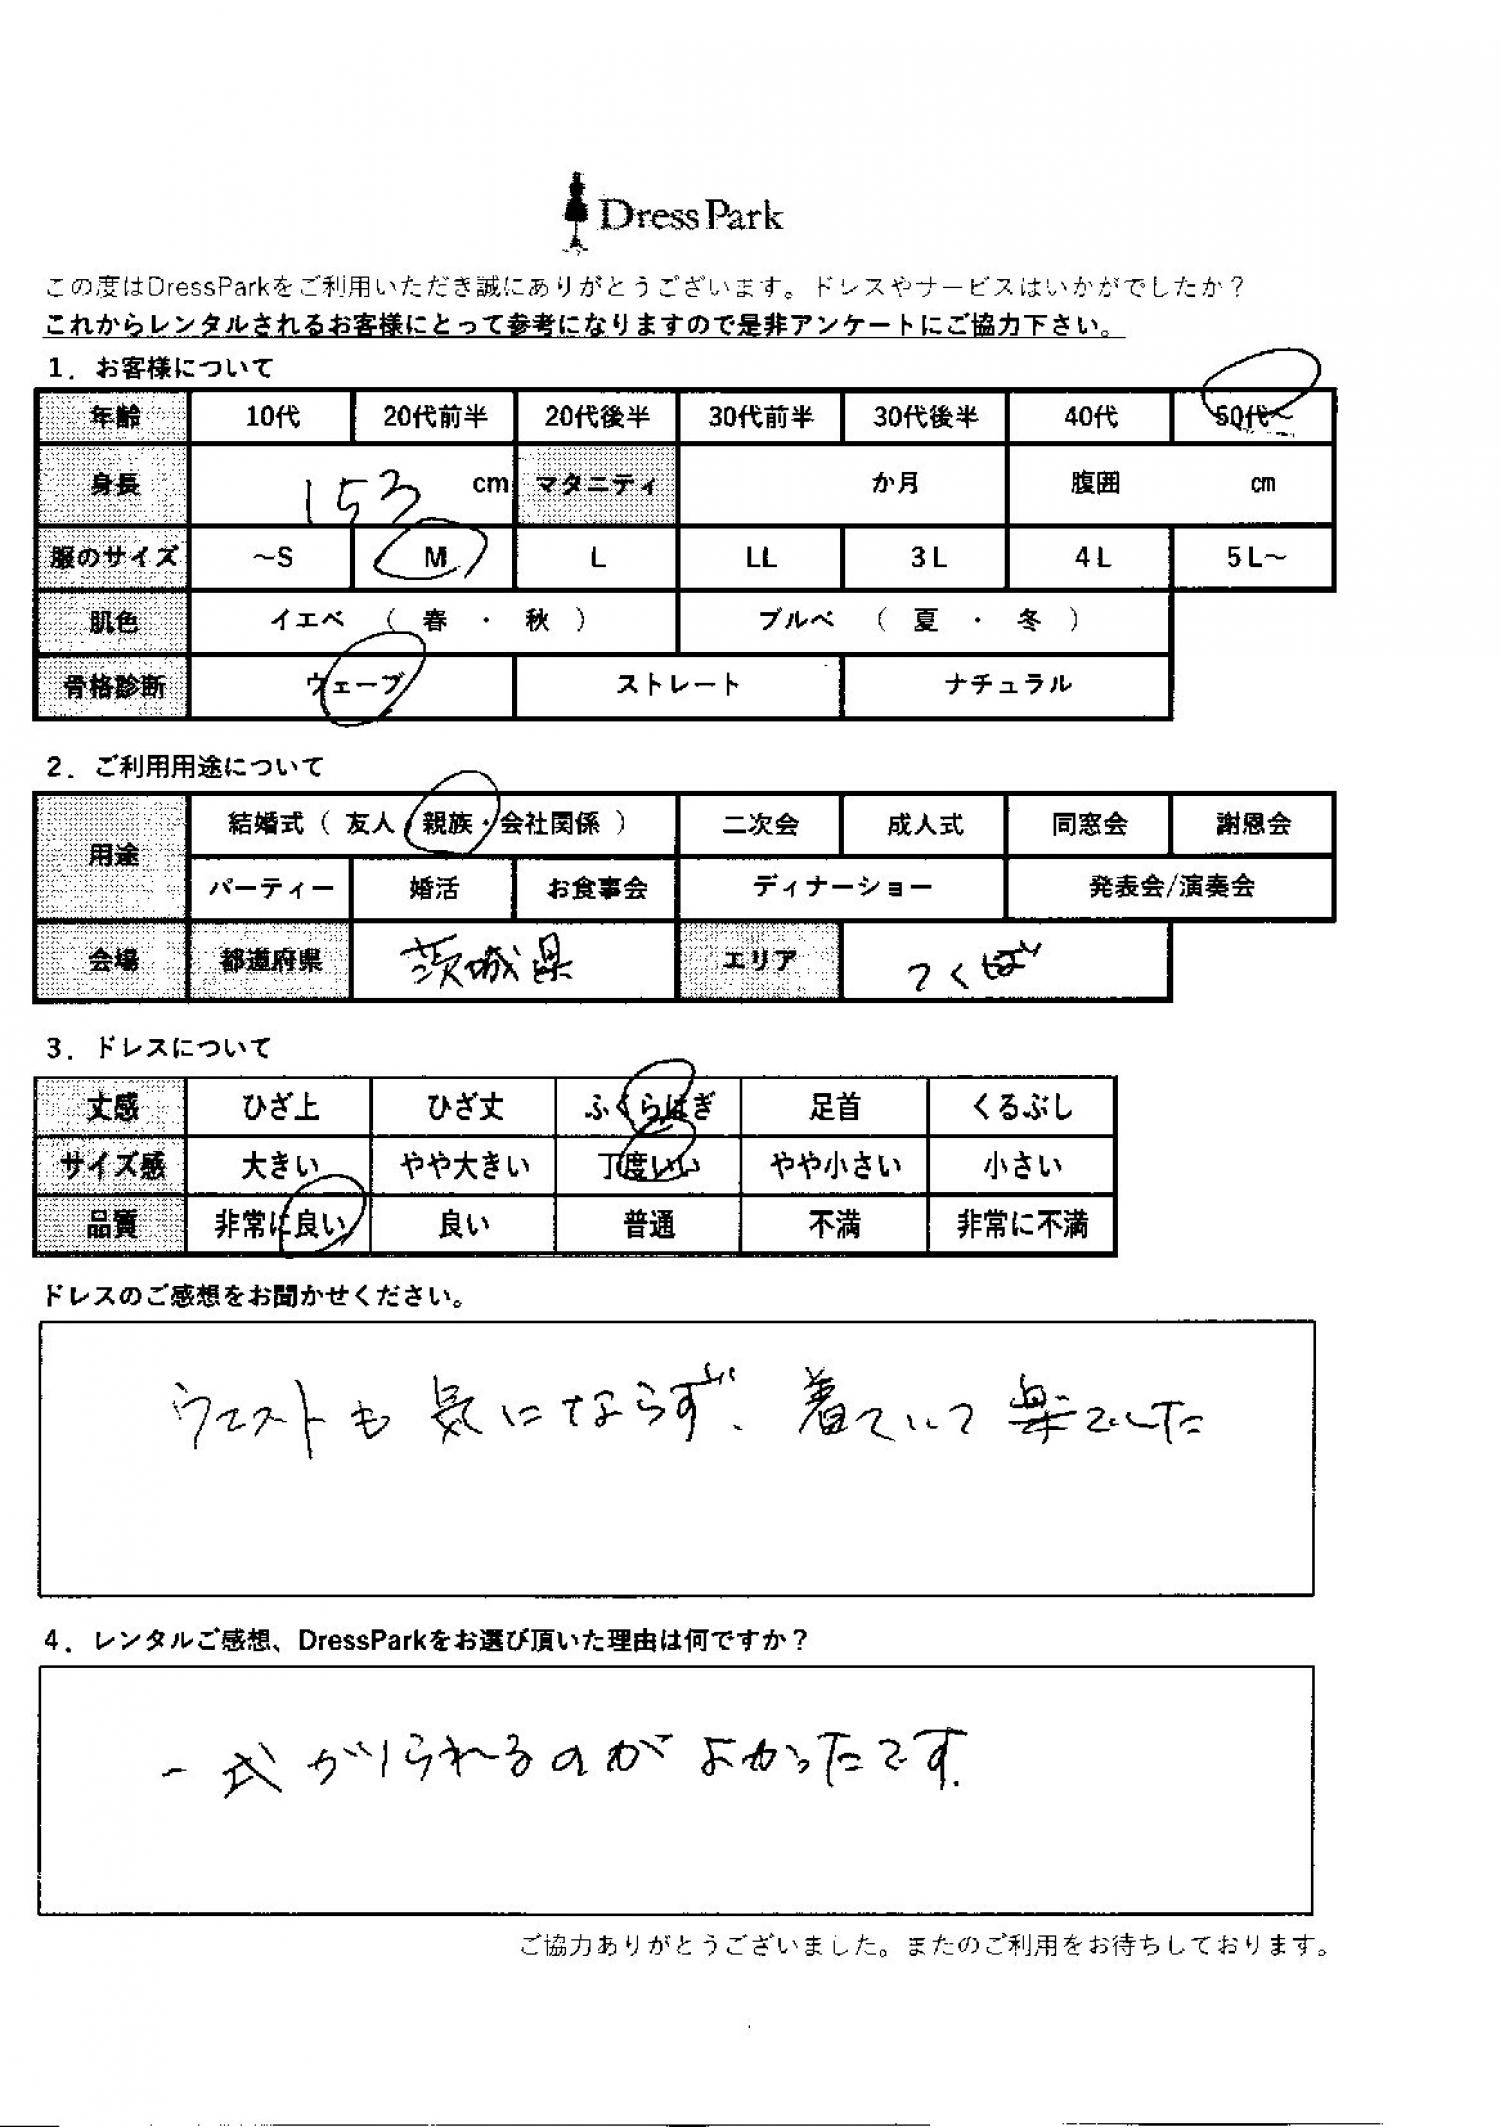 DressPark
この度はDressParkをご利用いただき誠にありがとうございます。ドレスやサービスはいかがでしたか？
これからレンタルされるお客様にとって参考になりますので是非アンケートにご協力下さい。
1．お客様について
年齢 10代 20代前半 20代後半 30代前半 30代後半 40代 50代～
身長 153 cm マタニティ か月 腹囲 cm
服のサイズ ～S M L LL 3L 4L 5L～
肌色 イエベ （ 春 ・ 秋 ） ブルベ （ 夏 ・ 冬 ）
骨格診断 ウェーブ ストレート ナチュラル
2．ご利用用途について
用途 結婚式（ 友人・親族・会社関係 ） 二次会 成人式 同窓会 謝恩会
パーティー 婚活 お食事会 ディナーショー 発表会/演奏会
会場 都道府県 茨城県 エリア つくば
3．ドレスについて
丈感 ひざ上 ひざ丈 ふくらはぎ 足首 くるぶし
サイズ感 大きい やや大きい 丁度いい やや小さい 小さい
品質 非常に良い 良い 普通 不満 非常に不満
ドレスのご感想をお聞かせください。
ウエストも気にならず、着ていて楽でした
4．レンタルご感想、DressParkをお選び頂いた理由は何ですか？
一式かりられるのがよかったです.
ご協力ありがとうございました。またのご利用をお待ちしております。